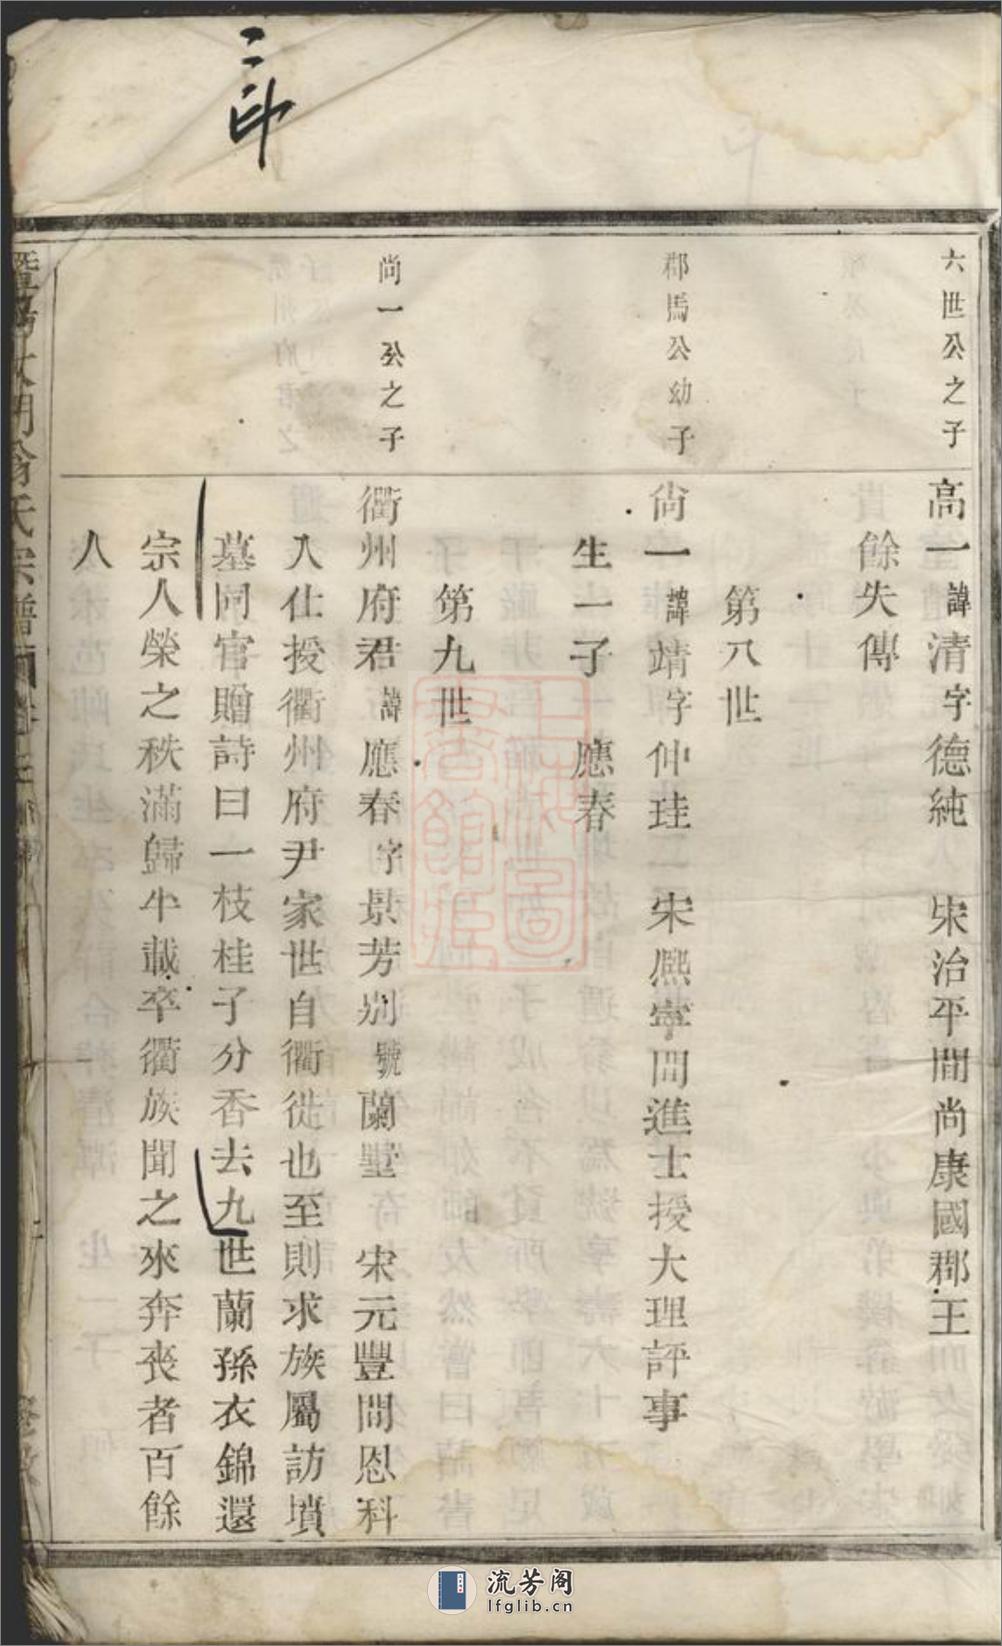 三印
六世公之子
高一諱清字德純 宋治平間尚康國郡王
餘失傳
第八世
郡馬公幼子
尚一諱靖字仲珪 宋熈寧間進士授大理評事
生一子 應春
第九世
尚一公之子
衢州府君諱應春字景芳别號蘭堂 宋元豐間恩科
入仕授衢州府尹家世自衢徙也至則求族屬訪墳
墓同官贈詩曰一枝桂子分香去九世蘭孫衣錦還
宗人榮之秩滿歸半載卒衢族聞之來奔喪者百餘
人
氏宗譜
上海圖書館藏
流芳阁
lfglib.cn